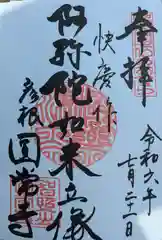 奉拝
令和六年
七月二十一日
快慶作
阿弥陀如来立像
彦根
圓常寺